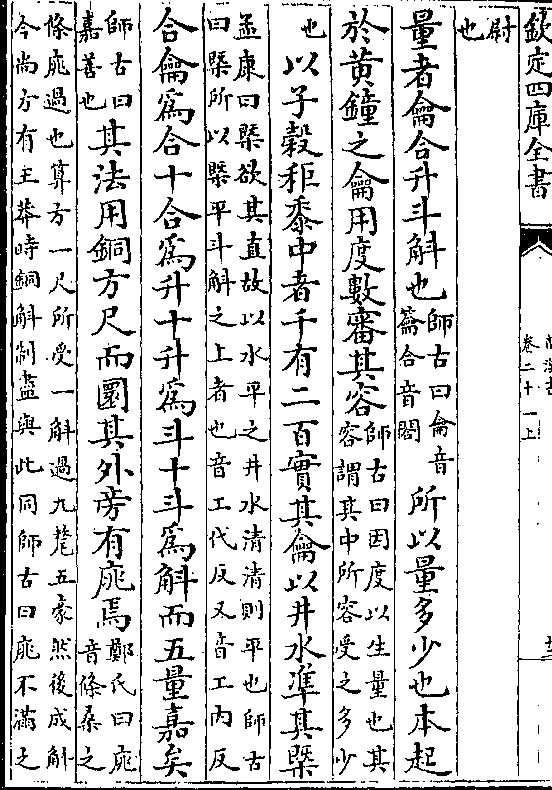 欽定四庫全書
卷二十一上
尉
也
量者龠合升斗斛也師古曰龠音
籥合音閤所以量多少也本起
於黄鐘之龠用度數審其容師古曰因度以生量也其
容謂其中所容受之多少
也以子穀秬黍中者千有二百實其龠以井水凖其槩
孟康曰槩欲其直故以水平之井水清清則平也師古
曰槩所以槩平斗斛之上者也音工代反又音工内反
合龠爲合十合爲升十升爲斗十斗爲斛而五量嘉矣
師古曰
嘉善也其法用銅方尺而圜其外旁有庣焉鄭氏曰庣
音條桑之
條庣過也算方一尺所受一斛過九氂五豪然後成斛
今尚方有王莽時銅斛制盡與此同師古曰庣不滿之